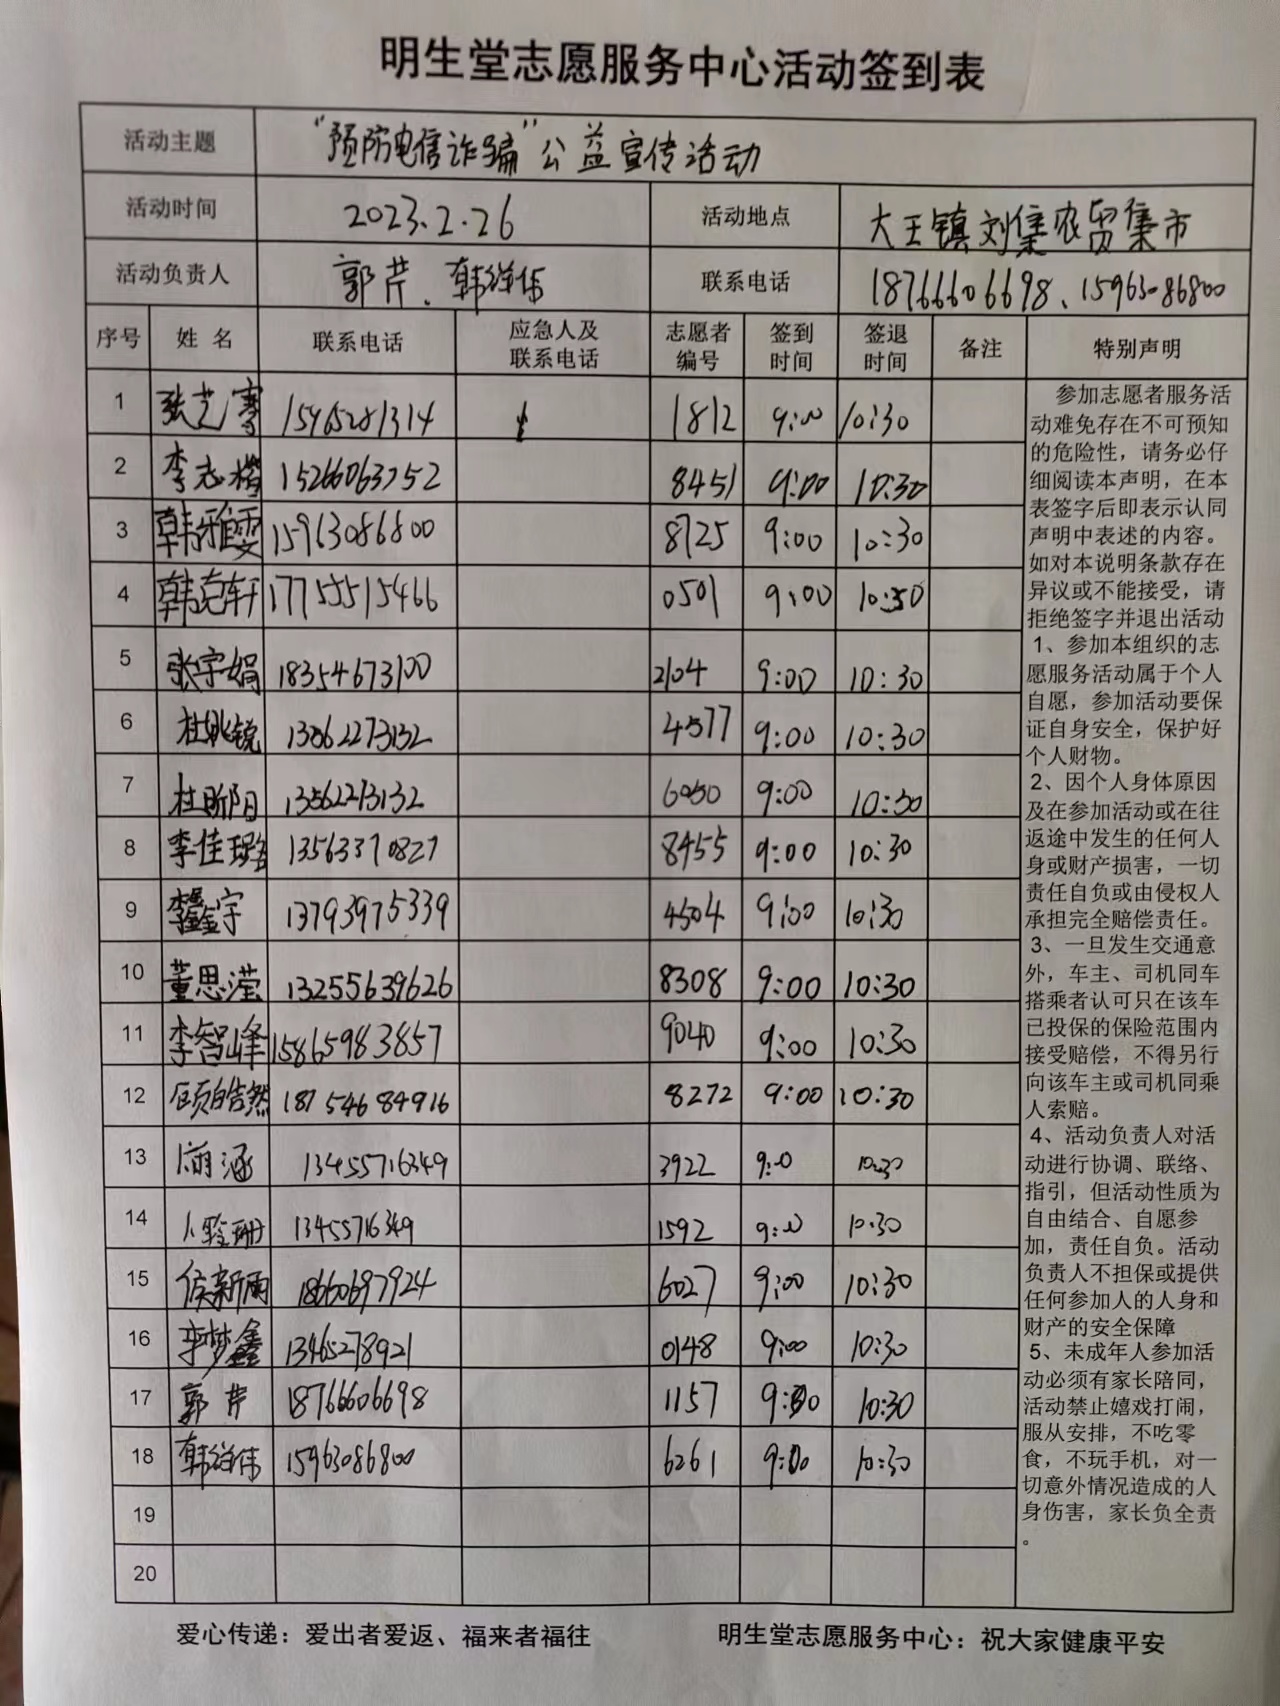 明生堂志愿服务中心活动签到表
活动主题 “预防电信诈骗”公益宣传活动
活动时间 2023.2.26 活动地点 大王镇刘集农贸集市
活动负责人 郭芹、韩祥伟 联系电话 18766606698、15963086800
序号 姓名 联系电话 应急人及联系电话 志愿者编号 签到时间 签退时间 备注 特别声明
1 张艺骞 15965281314 1812 9:00 10:30
2 李志楷 15266063752 8451 9:00 10:30
3 韩雅雯 15963086800 8725 9:00 10:30
4 韩克轩 17755515466 0501 9:00 10:30
5 张宇娟 18354673100 2104 9:00 10:30
6 杜姚锐 13562273132 4577 9:00 10:30
7 杜昕阳 13562273132 6050 9:00 10:30
8 李佳璐 13563370827 8455 9:00 10:30
9 李鑫宇 13793975339 4504 9:00 10:30
10 董思滢 13255639626 8308 9:00 10:30
11 李智峰 15865983857 9040 9:00 10:30
12 顾皓然 18754684916 8272 9:00 10:30
13 涵 13455716349 3922 9:00 10:30
14 13455716349 1592 9:00 10:30
15 侯新雨 18660697924 6027 9:00 10:30
16 李梦鑫 13465278921 0148 9:00 10:30
17 郭芹 18766606698 1157 9:00 10:30
18 韩祥伟 15963086800 6261 9:00 10:30
19
20
参加志愿者服务活
动难免存在不可预知
的危险性，请务必仔
细阅读本声明，在本
表签字后即表示认同
声明中表述的内容。
如对本说明条款存在
异议或不能接受，请
拒绝签字并退出活动
1、参加本组织的志
愿服务活动属于个人
自愿，参加活动要保
证自身安全，保护好
个人财物。
2、因个人身体原因
及在参加活动或在往
返途中发生的任何人
身或财产损害，一切
责任自负或由侵权人
承担完全赔偿责任。
3、一旦发生交通意
外，车主、司机同车
搭乘者认可只在该车
已投保的保险范围内
接受赔偿，不得另行
向该车主或司机同乘
人索赔。
4、活动负责人对活
动进行协调、联络、
指引，但活动性质为
自由结合、自愿参
加，责任自负。活动
负责人不担保或提供
任何参加人的人身和
财产的安全保障
5、未成年人参加活
动必须有家长陪同，
活动禁止嬉戏打闹，
服从安排，不吃零
食，不玩手机，对一
切意外情况造成的人
身伤害，家长负全责
。
爱心传递：爱出者爱返、福来者福往 明生堂志愿服务中心：祝大家健康平安